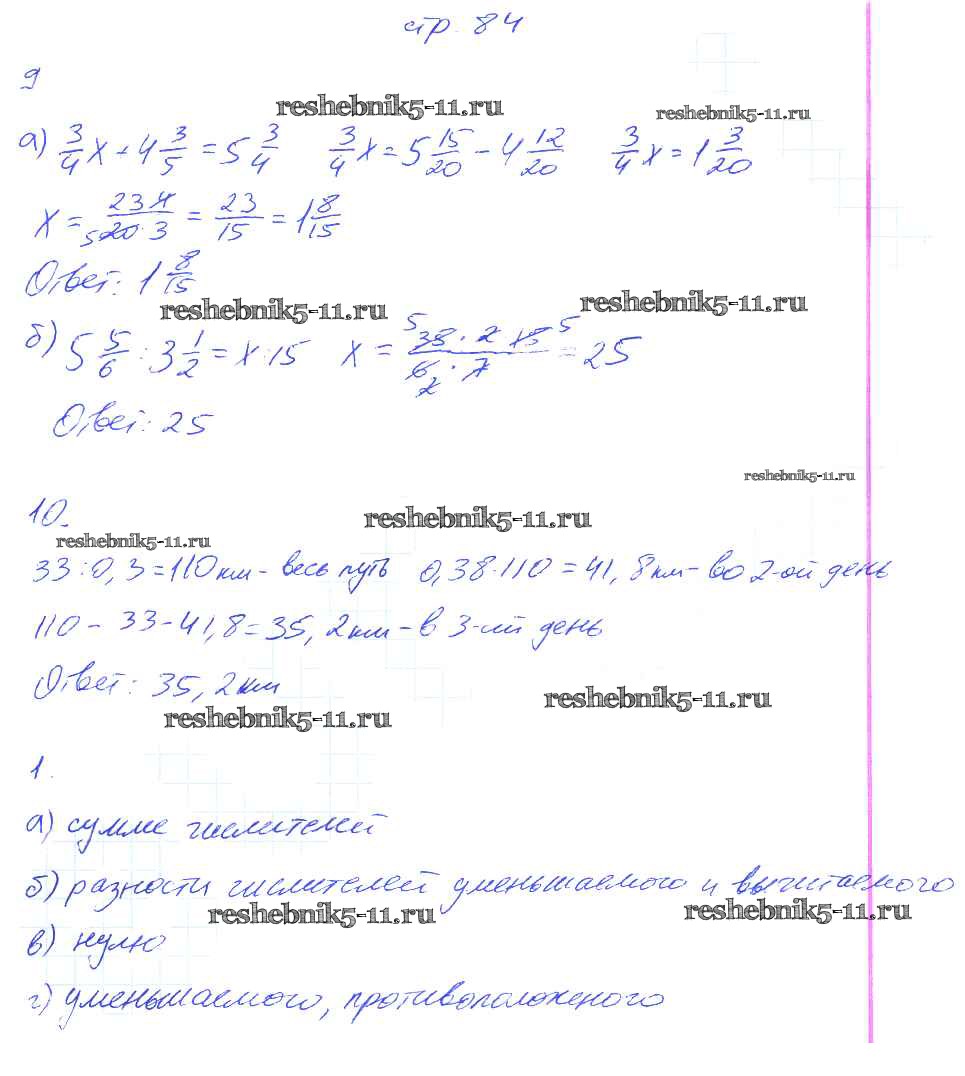 стр. 84
9
reshebnik5-11.ru
reshebnik5-11.ru
а) 3/4 x + 4 3/5 = 5 3/4   3/4 x = 5 15/20 - 4 12/20   3/4 x = 1 3/20
x = 23·4/20·3 5 = 23/15 = 1 8/15
Ответ: 1 8/15
reshebnik5-11.ru
reshebnik5-11.ru
б) 5 5/6 : 3 1/2 = x : 15   x = 5 35 · 2 · 15 5/6 2 · 7 = 25
Ответ: 25
reshebnik5-11.ru
10.
reshebnik5-11.ru
reshebnik5-11.ru
33 : 0,3 = 110 км - весь путь   0,38·110 = 41,8 км - во 2-ой день
110 - 33 - 41,8 = 35,2 км - в 3-ий день
Ответ: 35,2 км
reshebnik5-11.ru
reshebnik5-11.ru
1.
а) сумме числителей
б) разности числителей уменьшаемого и вычитаемого
reshebnik5-11.ru
reshebnik5-11.ru
в) нулю
г) уменьшаемого, противоположеного